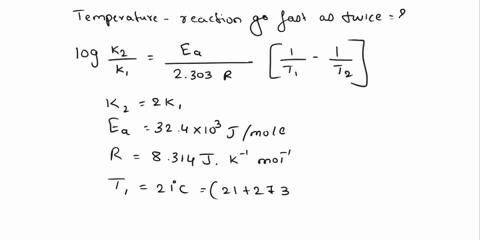 Temperature - reaction go fast as twice = ?
log K₂/K₁ = Ea / 2.303 R [1/T₁ - 1/T₂]
K₂ = 2K₁
Ea = 32.4×10³ J/mole
R = 8.314 J. K⁻¹ mol⁻¹
T₁ = 21°C = (21+273